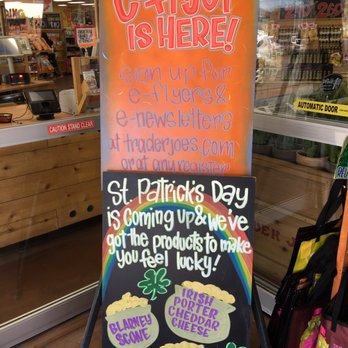 IS HERE!
Sign up for
e-flyers &
e-newsletters
at traderjoes.com
or at any register
St. Patrick's Day
is coming up & we've
got the products to make
you feel lucky!
BLARNEY
SCONE
IRISH
PORTER
CHEDDAR
CHEESE
CAUTION STAND CLEAR
AUTOMATIC DOOR